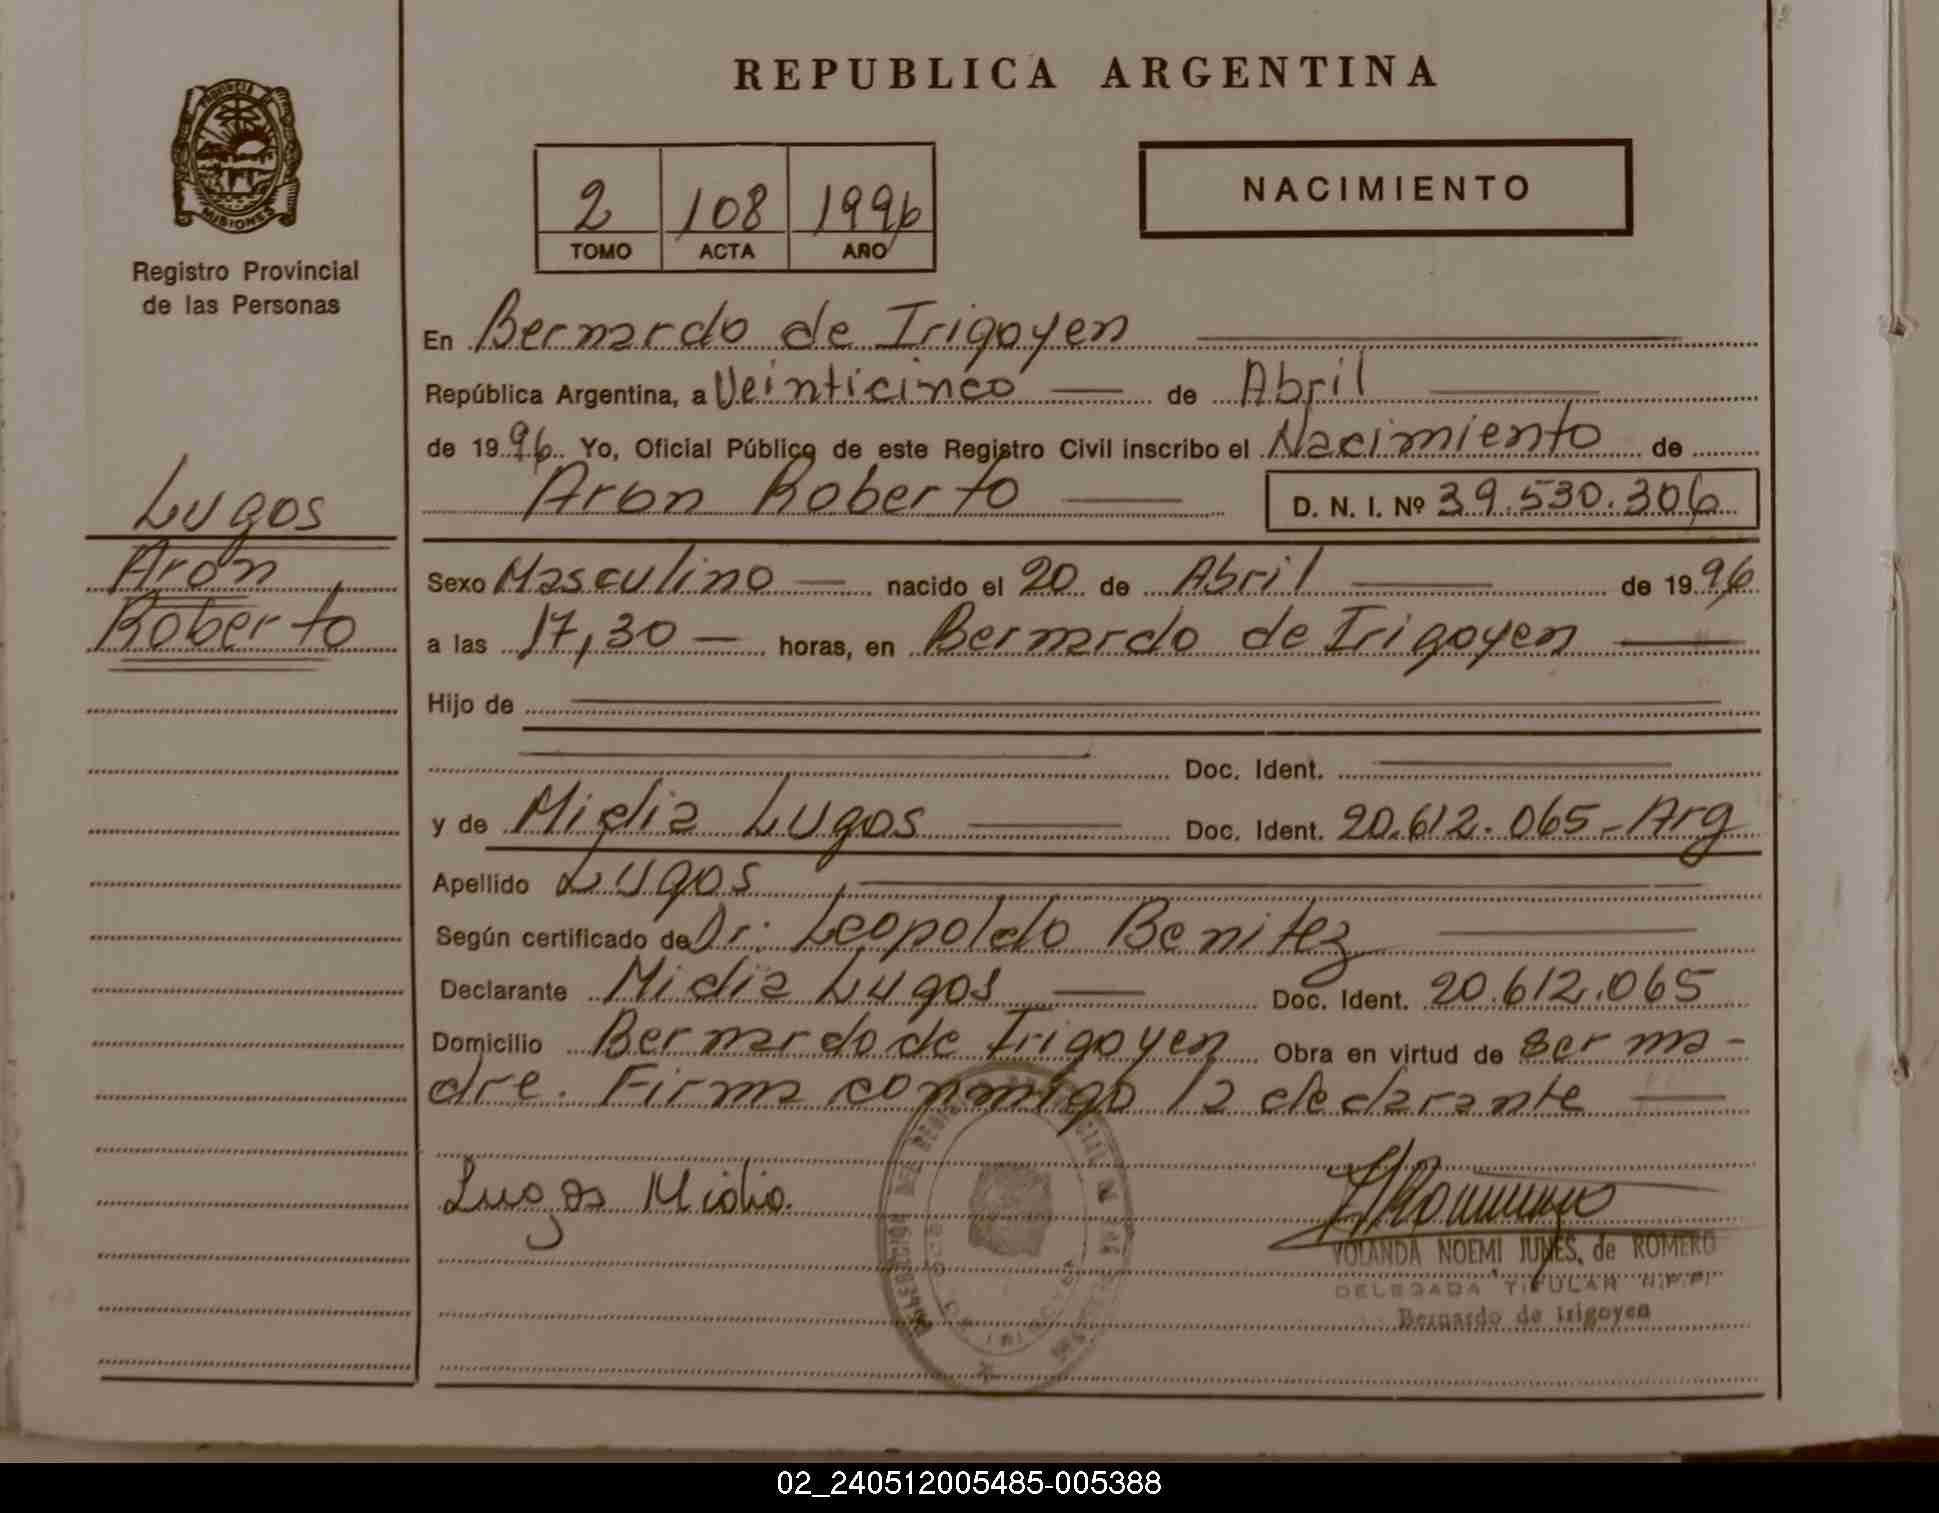 REPUBLICA ARGENTINA
PROVINCIA DE
MISIONES
Registro Provincial
de las Personas
2 108 1996
TOMO ACTA AÑO
NACIMIENTO
En Bernardo de Irigoyen
República Argentina, a Veinticinco de Abril
de 1996 Yo, Oficial Público de este Registro Civil inscribo el Nacimiento de
Aron Roberto D. N. I. Nº 39.530.306
Lugos
Aron
Roberto
Sexo Masculino nacido el 20 de Abril de 1996
a las 17,30 horas, en Bernardo de Irigoyen
Hijo de
Doc. Ident.
y de Midia Lugos Doc. Ident. 20.612.065-Arg
Apellido Lugos
Según certificado de Dr: Leopoldo Benitez
Declarante Midia Lugos Doc. Ident. 20.612.065
Domicilio Bernardo de Irigoyen Obra en virtud de ser ma-
dre. Firma conmigo la declarante
Lugos Midia.
YOLANDA NOEMI JUNES, de ROMERO
DELEGADA TITULAR R.P.P.
Bernardo de Irigoyen
02_240512005485-005388